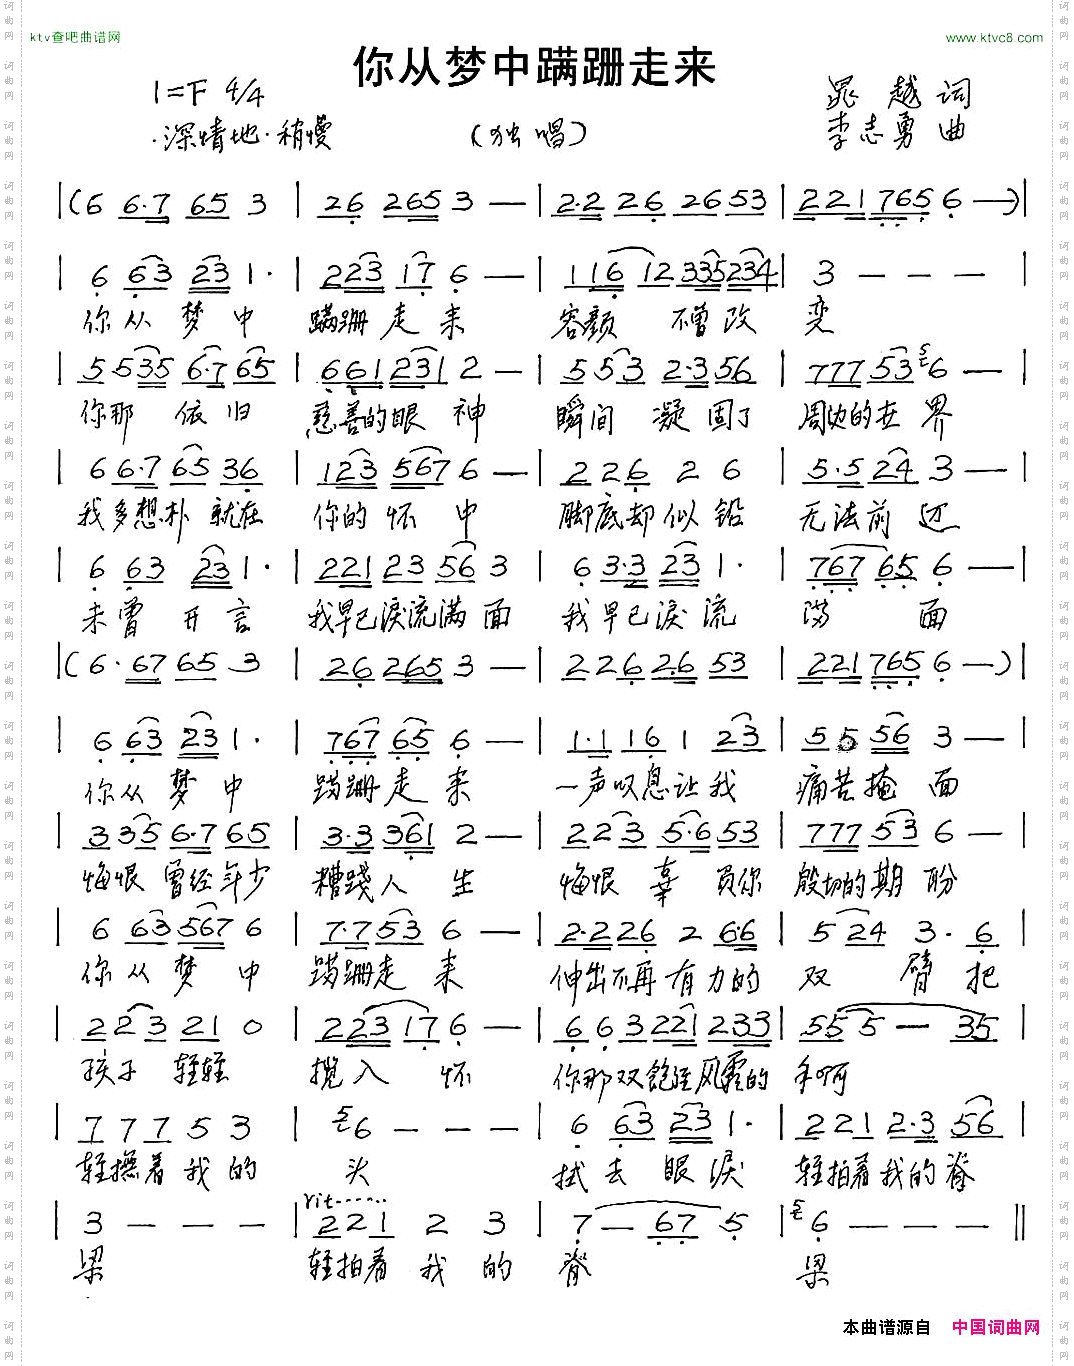 ktv查吧曲谱网
www.ktvc8.com
你从梦中蹒跚走来
1=F 4/4
晁越 词
·深情地·稍慢
(独唱)
李志勇 曲
|(6 6·7 65 3 | 26 265 3 — | 2·2 26 26 53 | 221 765 6 —)|
| 6 63 23 1· | 223 17 6 — | 116 12 335 234 | 3 — — — |
你从 梦中 蹒跚走来 容颜 不曾改变
| 5 535 6·7 65 | 661 231 2 — | 5 53 2·3 56 | 777 53 6 — |
你那 依旧 慈善的眼神 瞬间 凝固了 周边的世界
| 6 6·7 65 36 | 123 567 6 — | 2 26 2 6 | 5·5 24 3 — |
我多想扑就在 你的怀中 脚底却似铅 无法前迈
| 6 63 23 1· | 221 23 56 3 | 6 3·3 23 1· | 767 65 6 — |
未曾开言 我早已淚流满面 我早已淚流 满面
|(6·67 65 3 | 26 265 3 — | 2 26 2·6 53 | 221 765 6 —)|
| 6 63 23 1· | 767 65 6 — | 1·1 16 1 23 | 5 5 56 3 — |
你从 梦中 蹒跚走来 一声叹息让我 痛苦掩面
| 3 35 6·7 65 | 3·3 361 2 — | 2 23 5·6 53 | 777 53 6 — |
悔恨 曾经年少 糟踐人生 悔恨 辜负你 殷切的期盼
| 6 63 567 6 | 7·7 53 6 — | 2·2 26 2 6·6 | 5 24 3· 6 |
你从 梦中 蹒跚走来 伸出不再有力的 双臂把
| 2 23 21 0 | 223 17 6 — | 6 63 221 233 | 55 5 — 35 |
孩子 轻轻 揽入怀 你那双饱经风霜的 手啊
| 7 7 7 5 3 | 6 — — — | 6 63 23 1· | 221 2·3 56 |
轻撫着我的 头 拭去眼淚 轻拍着我的脊
rit······
| 3 — — — | 221 2 3 | 7 — 67 5 | 6 — — — ‖
梁 轻拍着我的 脊 梁
本曲谱源自 中国词曲网